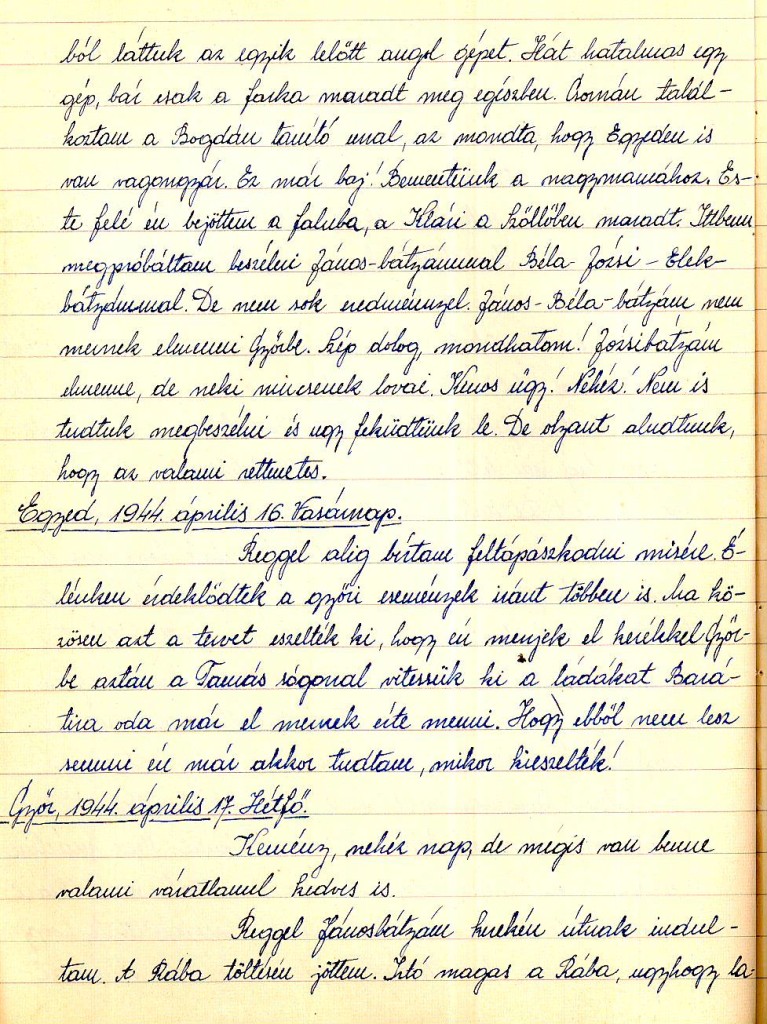 ból láttuk az egyik lelőtt angol gépet. Hát hatalmas egy
gép, bár csak a farka maradt meg egészben. Csornán talál-
koztam a Bogdán tanító úrral, az mondta, hogy Egyeden is
van vagongyár. Ez már baj! Bementünk a nagymamához. Es-
te felé én bejöttem a faluba, a Klári a Szőllőben maradt. Ittbenn
megpróbáltam beszélni János-bátyámmal Béla-Józsi-Elek-
bátyámmal. De nem sok eredménnyel. János-Béla-bátyám nem
mernek elmenni Győrbe. Szép dolog, mondhatom! Józsibátyám
elmenne, de neki nincsenek lovai. Kínos ügy! Nehéz! Nem is
tudtuk megbeszélni és úgy feküdtünk le. De olyant aludtunk,
hogy az valami rettenetes.
Egyed, 1944. április 16. Vasárnap.
Reggel alig bírtam feltápászkodni misére. É-
lénken érdeklődtek a győri események iránt többen is. Ma kö-
zösen azt a tervet eszelték ki, hogy én menjek el kerékkel Győr-
be aztán a Tamás sógorral vitessük ki a ládákat Bará-
tira oda már el mernek érte menni. Hogy ebből nem lesz
semmi én már akkor tudtam, mikor kieszelték!
Győr, 1944. április 17. Hétfő.
Kemény, nehéz nap, de mégis van benne
valami váratlanul kedves is.
Reggel Jánosbátyám kerekén útnak indul-
tam. A Rába töltésén jöttem. Jó magas a Rába, úgyhogy la-